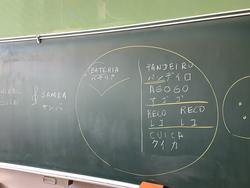 SAMBA
サンバ
BATERIA
バテリア
PANDEIRO
パンデイロ
AGOGO
アゴゴ
RECO RECO
レコ レコ
CUICA
クイカ